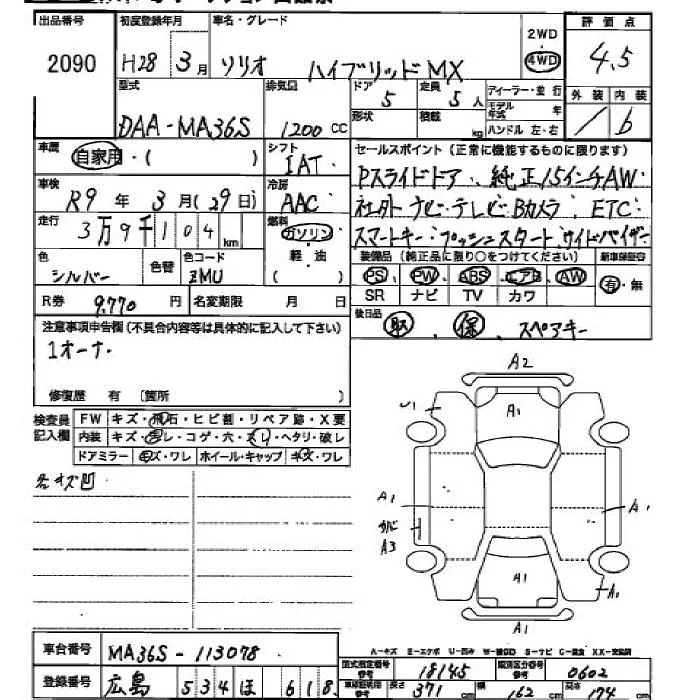 出品番号 初度登録年月 車名・グレード 2WD 評価点
2090 H28 3月 ソリオ ハイブリッド MX 4WD 4.5
型式 排気量 ドア 5 定員 5人 ディーラー・並行 外装 内装
DAA-MA36S 1200 CC 形状 積載 kg モデル年式 年 ハンドル 左・右 / b
車歴 自家用・( ) シフト IAT セールスポイント (正常に機能するものに限ります)
車検 R9年 3月(29日) 冷房 AAC Pスライドドア、純正15インチAW・
走行 3万9千104km 燃料 ガソリン 社外ナビ・テレビ・Bカメラ・ETC・
軽油 スマートキー・プッシュスタート・サイドバイザー
色 色替 色コード ( ) 装備品 (純正品に限り○をつけてください) 新車保証書
シルバー ZMU PS PW ABS エアB AW 有・無
R券 9,770円 名変期限 月 日 SR ナビ TV カワ
注意事項申告欄(不具合内容等は具体的に記入して下さい) 後日品 取、保、スペアキー
1オーナー
修復歴 有 (箇所 )
検査員記入欄 FW キズ・飛石・ヒビ割・リペア跡・X要
内装 キズ・汚レ・コゲ・穴・スレ・ヘタリ・破レ
ドアミラー キズ・ワレ ホイール・キャップ キズ・ワレ
各キズ凹
A2
A1
A1
A1
A3
A1
A1
A1
A1
A-キズ E-エクボ U-凹み W-補修跡 S-サビ C-腐食 XX-交換済
車台番号 MA36S-113078 型式指定番号 参考 18145 類別区分番号 参考 0602
登録番号 広島 534 ほ 618 車体証明用 参考 長さ 371 cm 幅 162 cm 高さ 174 cm